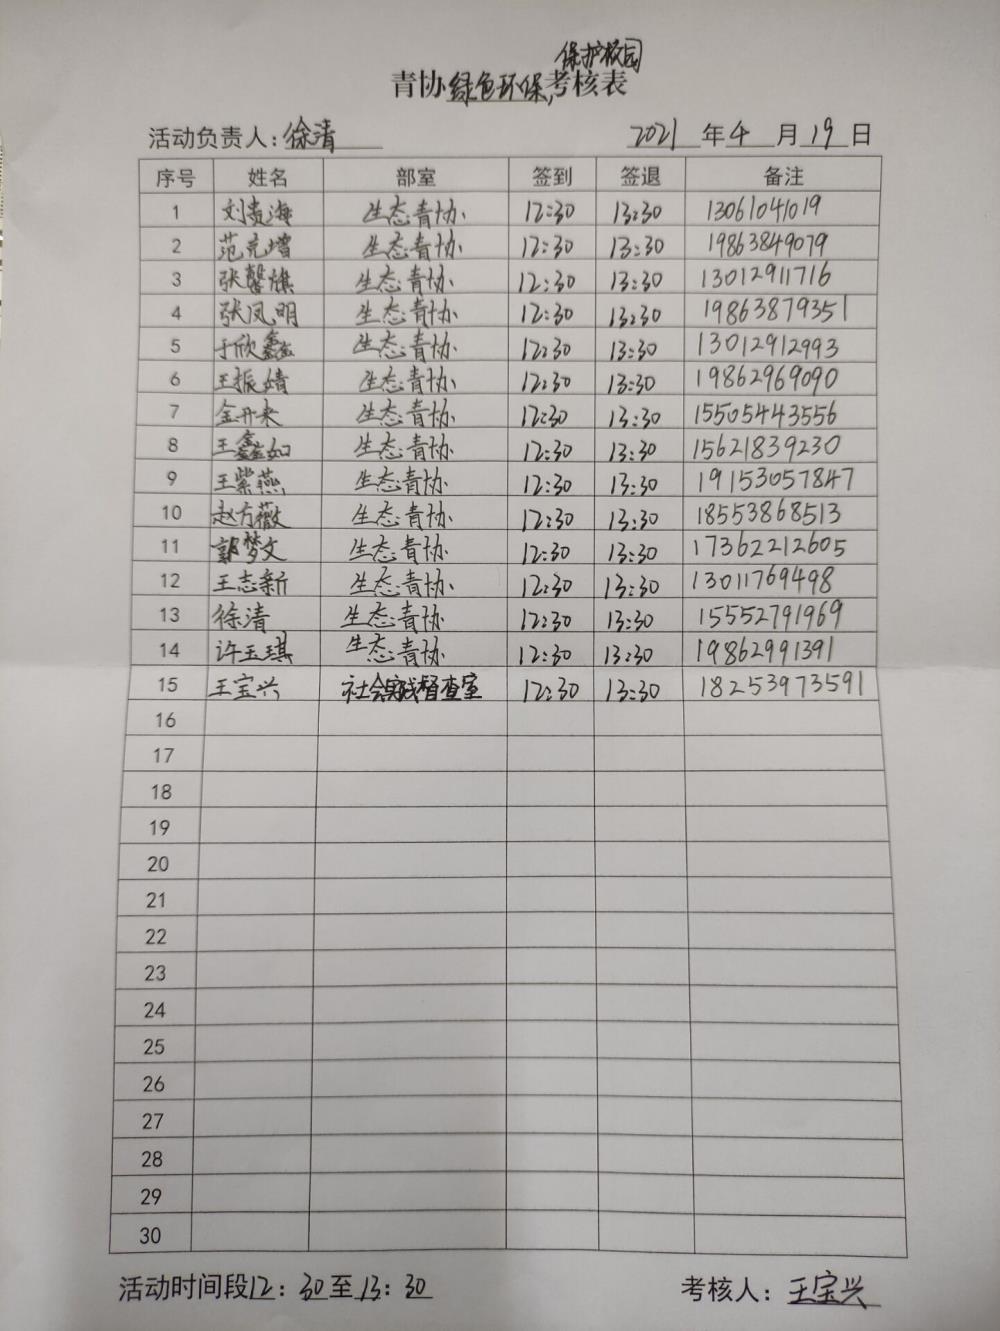 保护校园
青协绿色环保,考核表
活动负责人:徐清 2021年4月19日
序号 姓名 部室 签到 签退 备注
1 刘贵海 生态青协 12:30 13:30 13061041019
2 范克增 生态青协 12:30 13:30 19863849079
3 张馨旗 生态青协 12:30 13:30 13012911716
4 张凤明 生态青协 12:30 13:30 19863879351
5 于欣鑫 生态青协 12:30 13:30 13012912993
6 王振婧 生态青协 12:30 13:30 19862969090
7 金开来 生态青协 12:30 13:30 15505443556
8 王鑫如 生态青协 12:30 13:30 15621839230
9 王紫燕 生态青协 12:30 13:30 19153057847
10 赵方薇 生态青协 12:30 13:30 18553868513
11 郭梦文 生态青协 12:30 13:30 17362212605
12 王志新 生态青协 12:30 13:30 13011769498
13 徐清 生态青协 12:30 13:30 15552791969
14 许玉琪 生态青协 12:30 13:30 19862991391
15 王宝兴 社会实践督查室 12:30 13:30 18253973591
16
17
18
19
20
21
22
23
24
25
26
27
28
29
30
活动时间段12:30至13:30 考核人:王宝兴